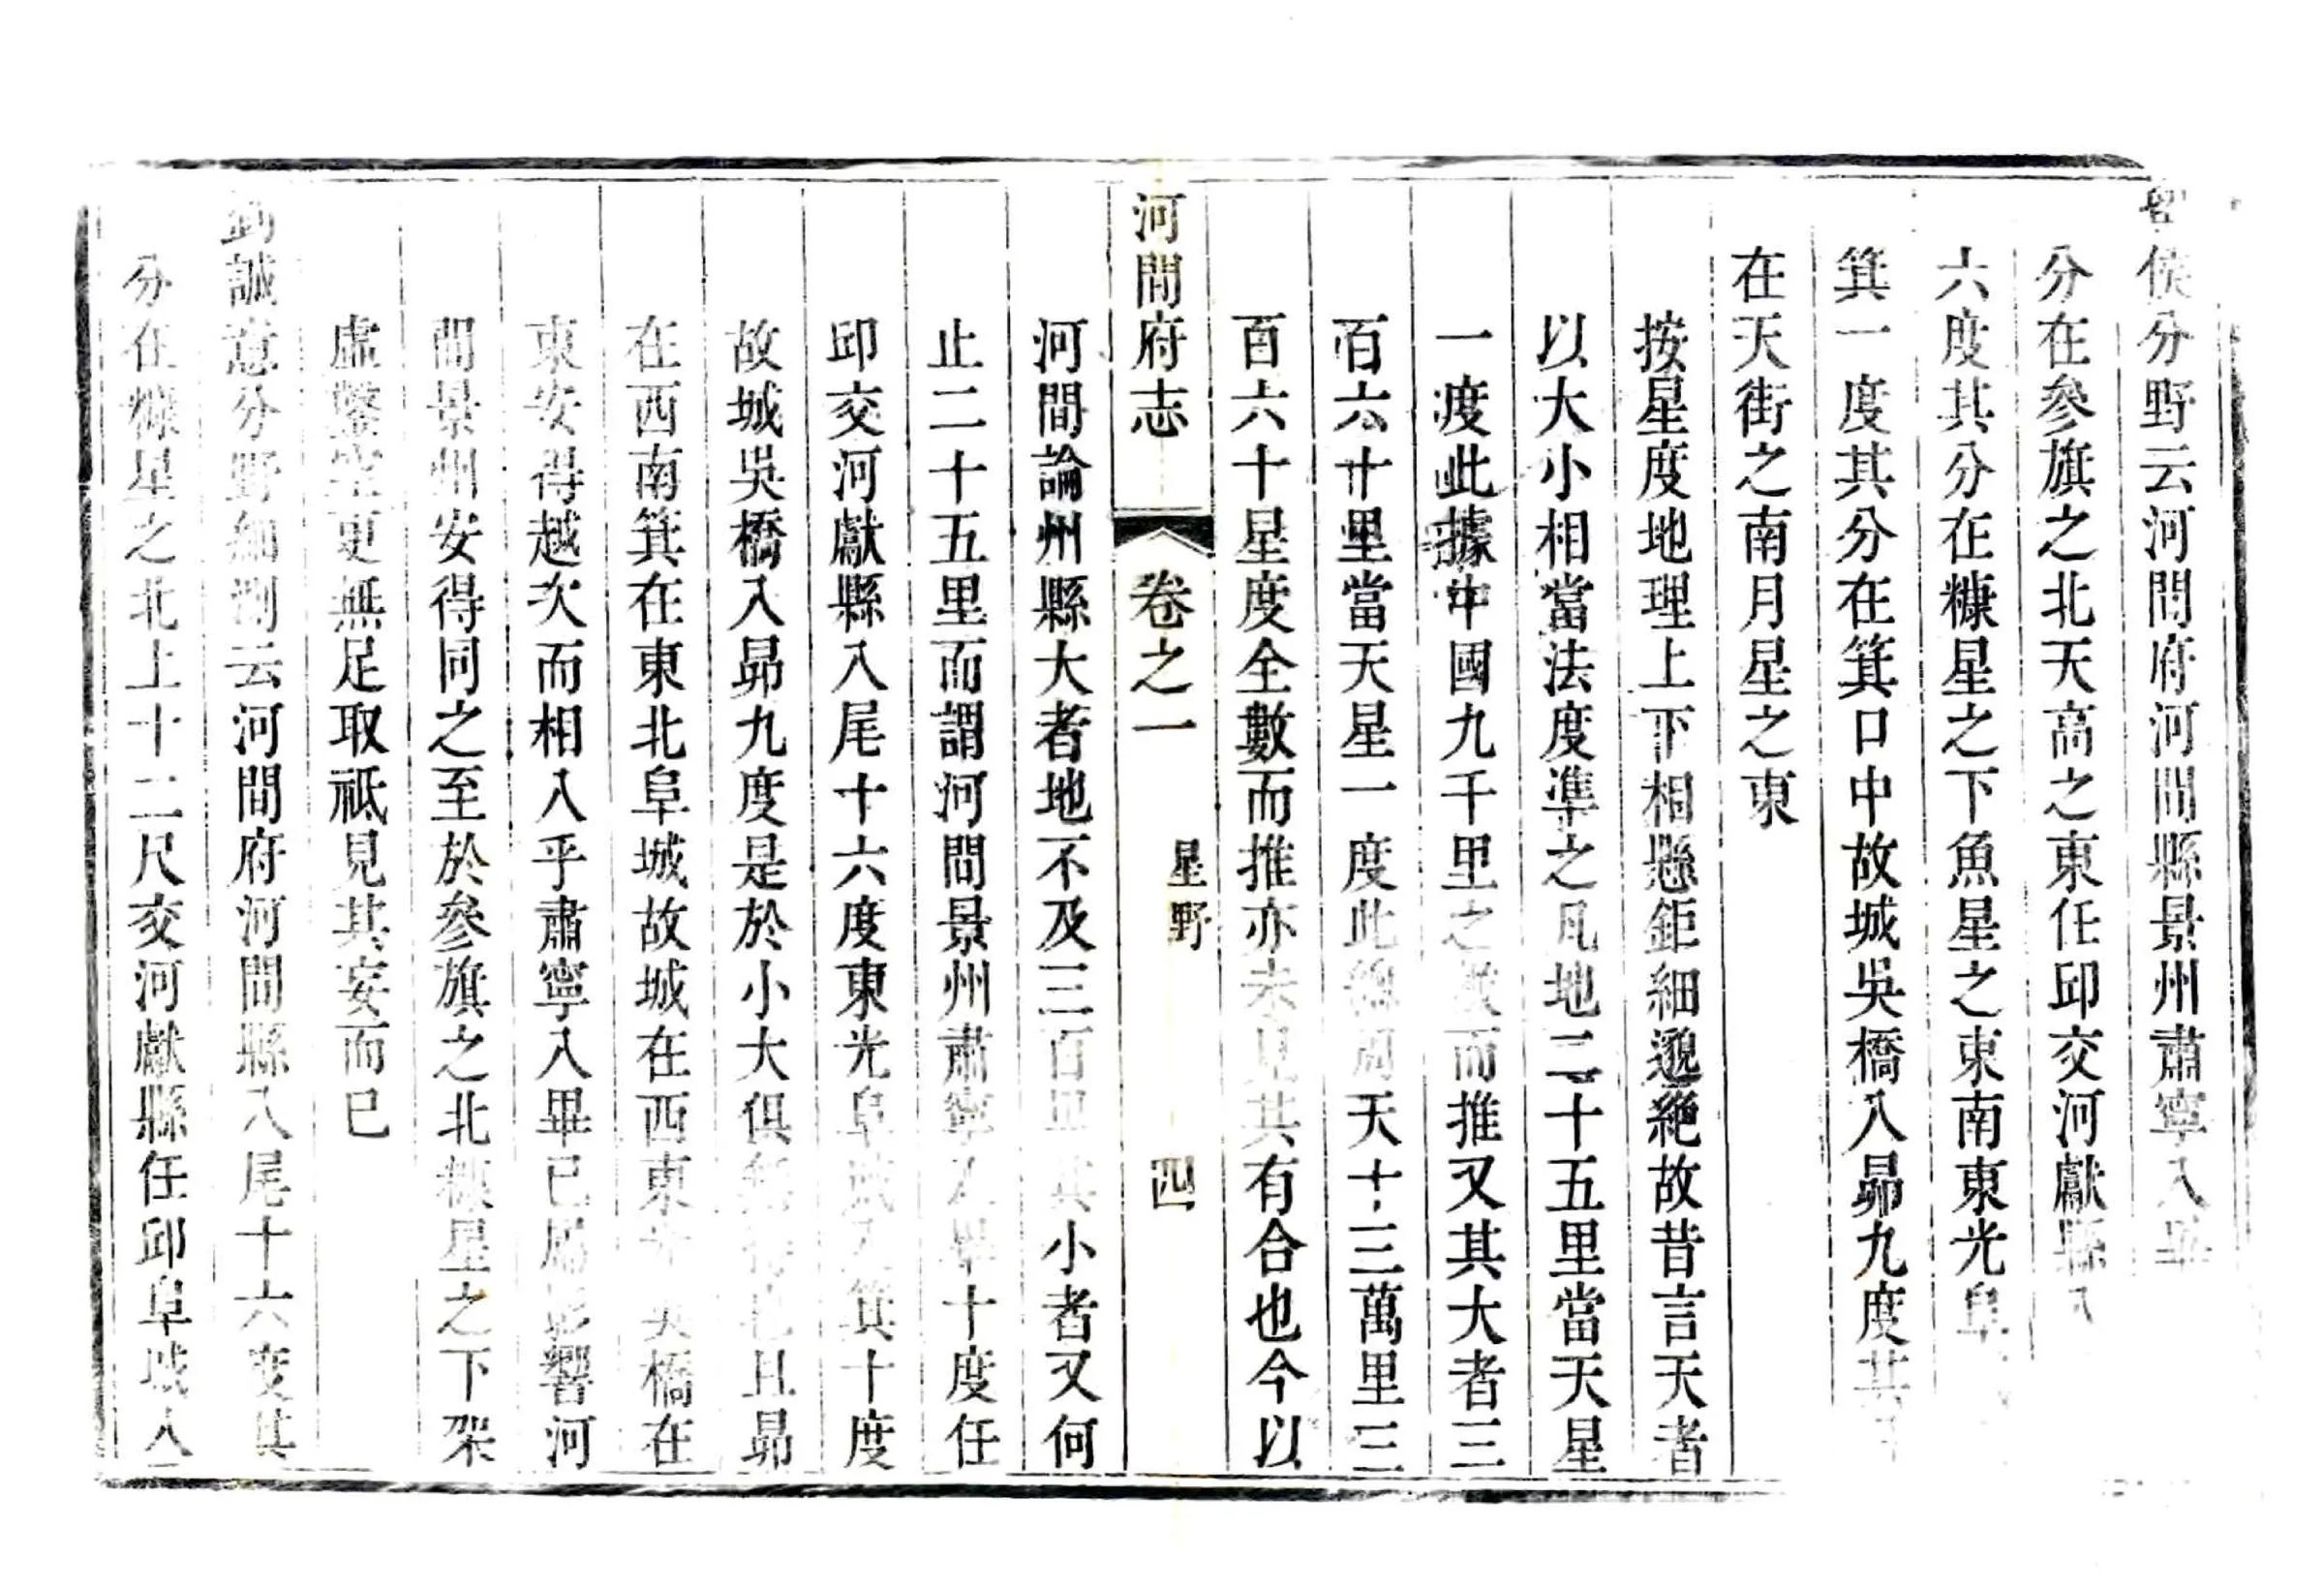 侯分野云河間府河間縣景州肅寧入畢
分在參旗之北天高之東任邱交河獻縣入
六度其分在糠星之下魚星之東南東光阜
箕一度其分在箕口中故城吳橋入昴九度其
在天街之南月星之東
按星度地理上下相懸鉅細邈絶故昔言天者
以大小相當法度準之凡地二十五里當天星
一度此據中國九千里之數而推又其大者三
百六十里當天星一度此總周天十三萬里三
百六十星度全數而推亦未見其有合也今以
河間府志
卷之一
星野
四
河間論州縣大者地不及三百里其小者又何
止二十五里而謂河間景州肅寧入畢十度任
邱交河獻縣入尾十六度東光阜城入箕十度
故城吳橋入昴九度是於小大俱無也且昴
在西南箕在東北阜城故城在西東光吳橋在
東安得越次而相入乎肅寧入畢已屬影響河
間景州安得同之至於參旗之北糠星之下架
虛鑿空更無足取祗見其妄而已
誠意分野細測云河間府河間縣入尾十六度其
分在糠星之北上十二尺交河獻縣任邱阜城入